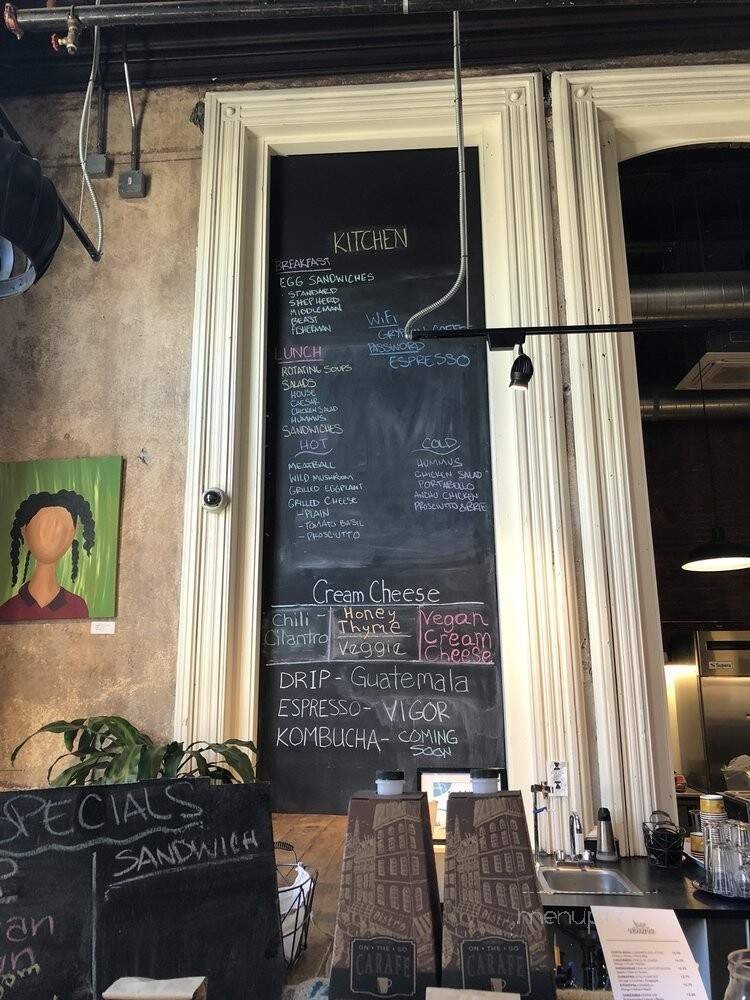 KITCHEN
BREAKFAST
EGG SANDWICHES
STANDARD
SHEPHERD
MIDDLEMAN
BEAST
FISHERMAN
WiFi
PASSWORD
ESPRESSO
LUNCH
ROTATING SOUPS
SALADS
HOUSE
CAESAR
CHICKEN SALAD
HUMMUS
SANDWICHES
HOT
MEATBALL
WILD MUSHROOM
GRILLED EGGPLANT
GRILLED CHEESE
- PLAIN
- TOMATO BASIL
- PROSCIUTTO
COLD
HUMMUS
CHICKEN SALAD
PORTABELLO
ANCHO CHICKEN
PROSCIUTTO & BRIE
Cream Cheese
Chili -
Cilantro
Honey
Thyme
Veggie
Vegan
Cream
Cheese
DRIP - Guatemala
ESPRESSO - VIGOR
KOMBUCHA - COMING
SOON
SPECIALS
SANDWICH
ON • THE • GO
CARAFE
ON • THE • GO
CARAFE
menupix